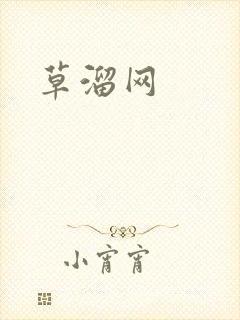 草溜网
小宵宵